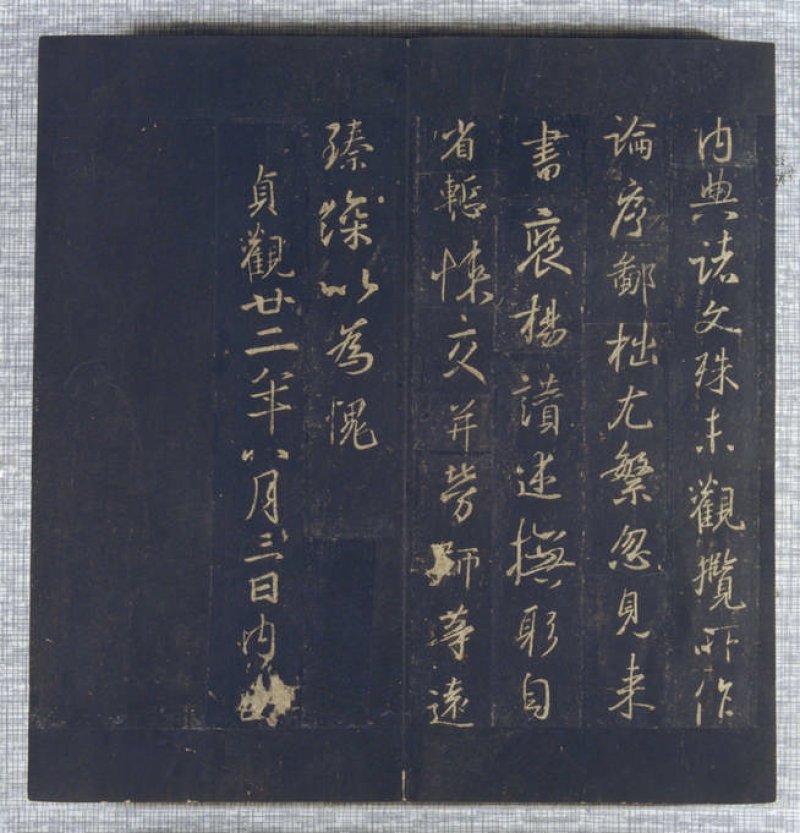 內典諸文殊未觀攬所作
論序鄙拙尤繁忽見來
書褒揚讚述撫躬自
省慙悚交并勞師等遠
臻深以為愧
貞觀廿二年八月三日內